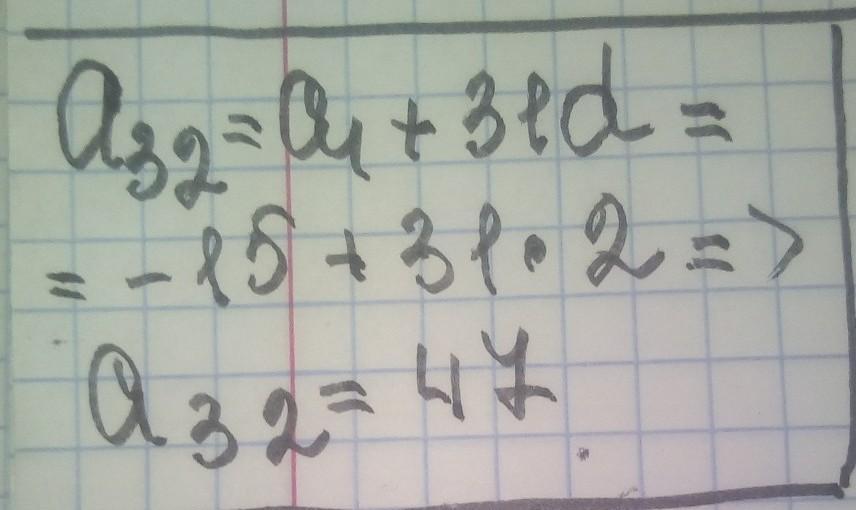 a₃₂ = a₁ + 31d =
= -15 + 31 · 2 = >
a₃₂ = 47